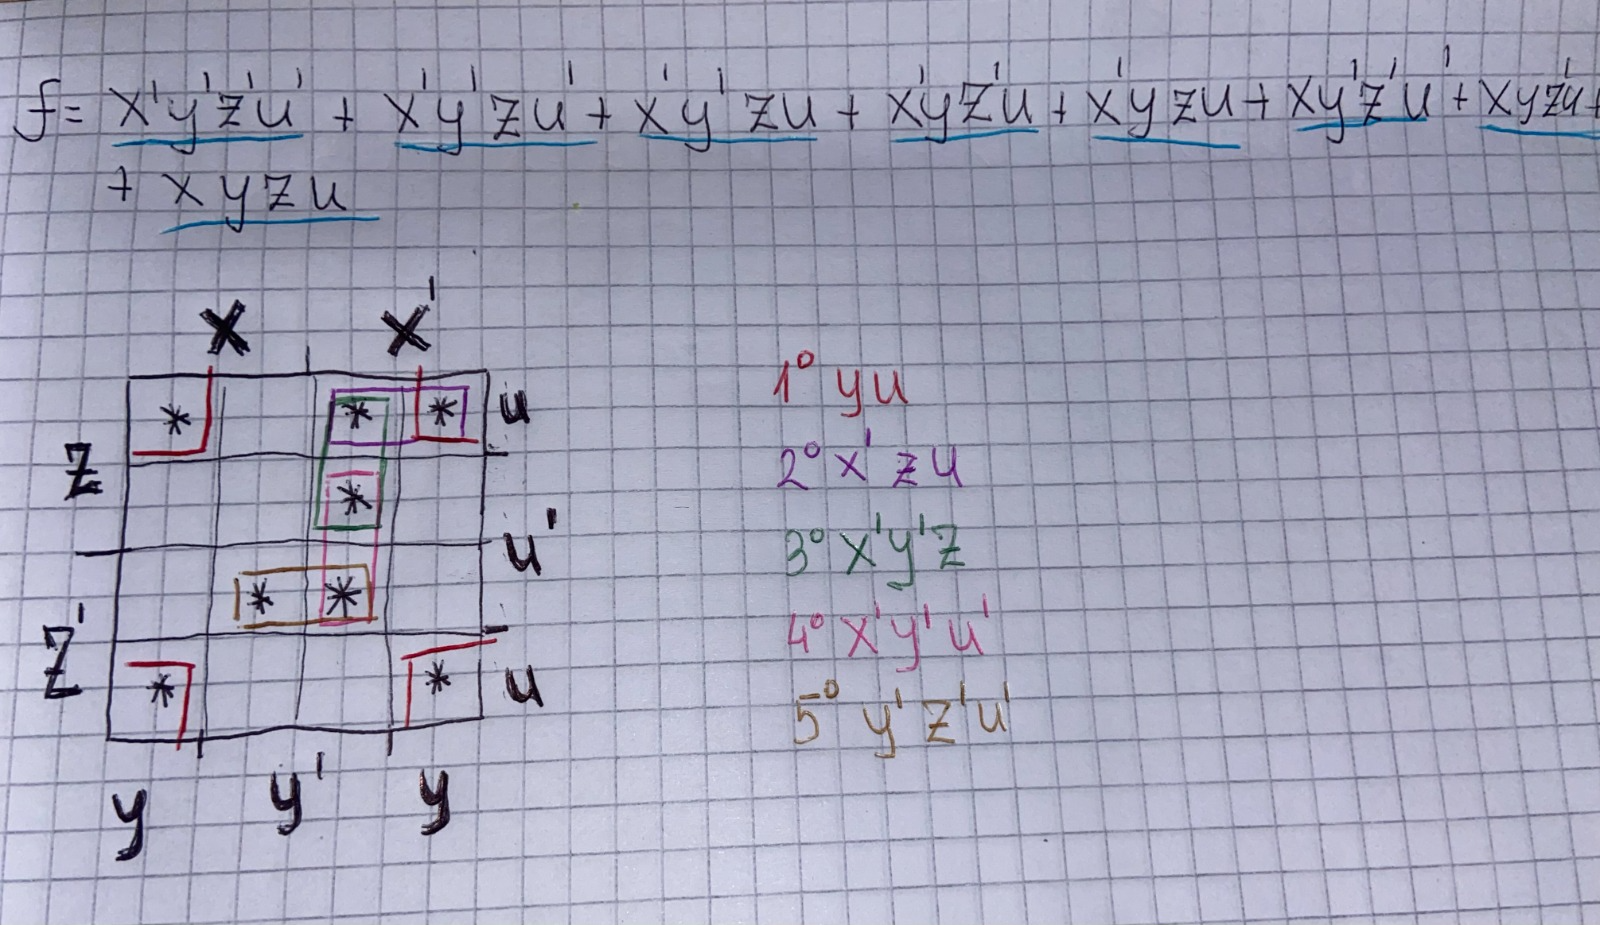 f = x'y'z'u' + x'y'zu' + x'y'zu + x'yz'u + x'yzu + xy'z'u' + xyz'u +
+ xyzu
x x'
* * * u
z
*
u'
* *
z'
* * u
y y' y
1° yu
2° x'zu
3° x'y'z
4° x'y'u'
5° y'z'u'